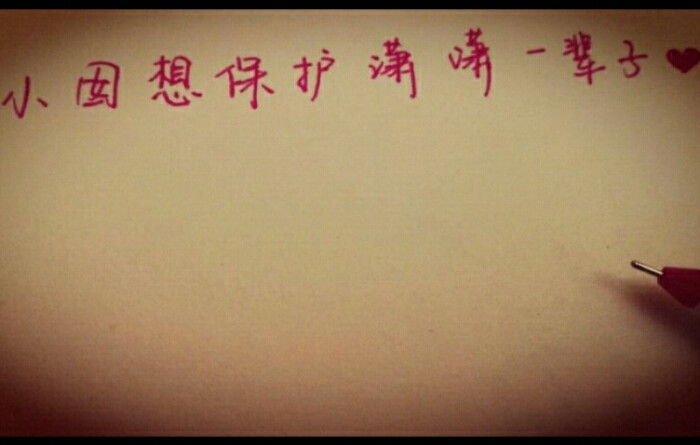 小囡想保护潇潇一辈子